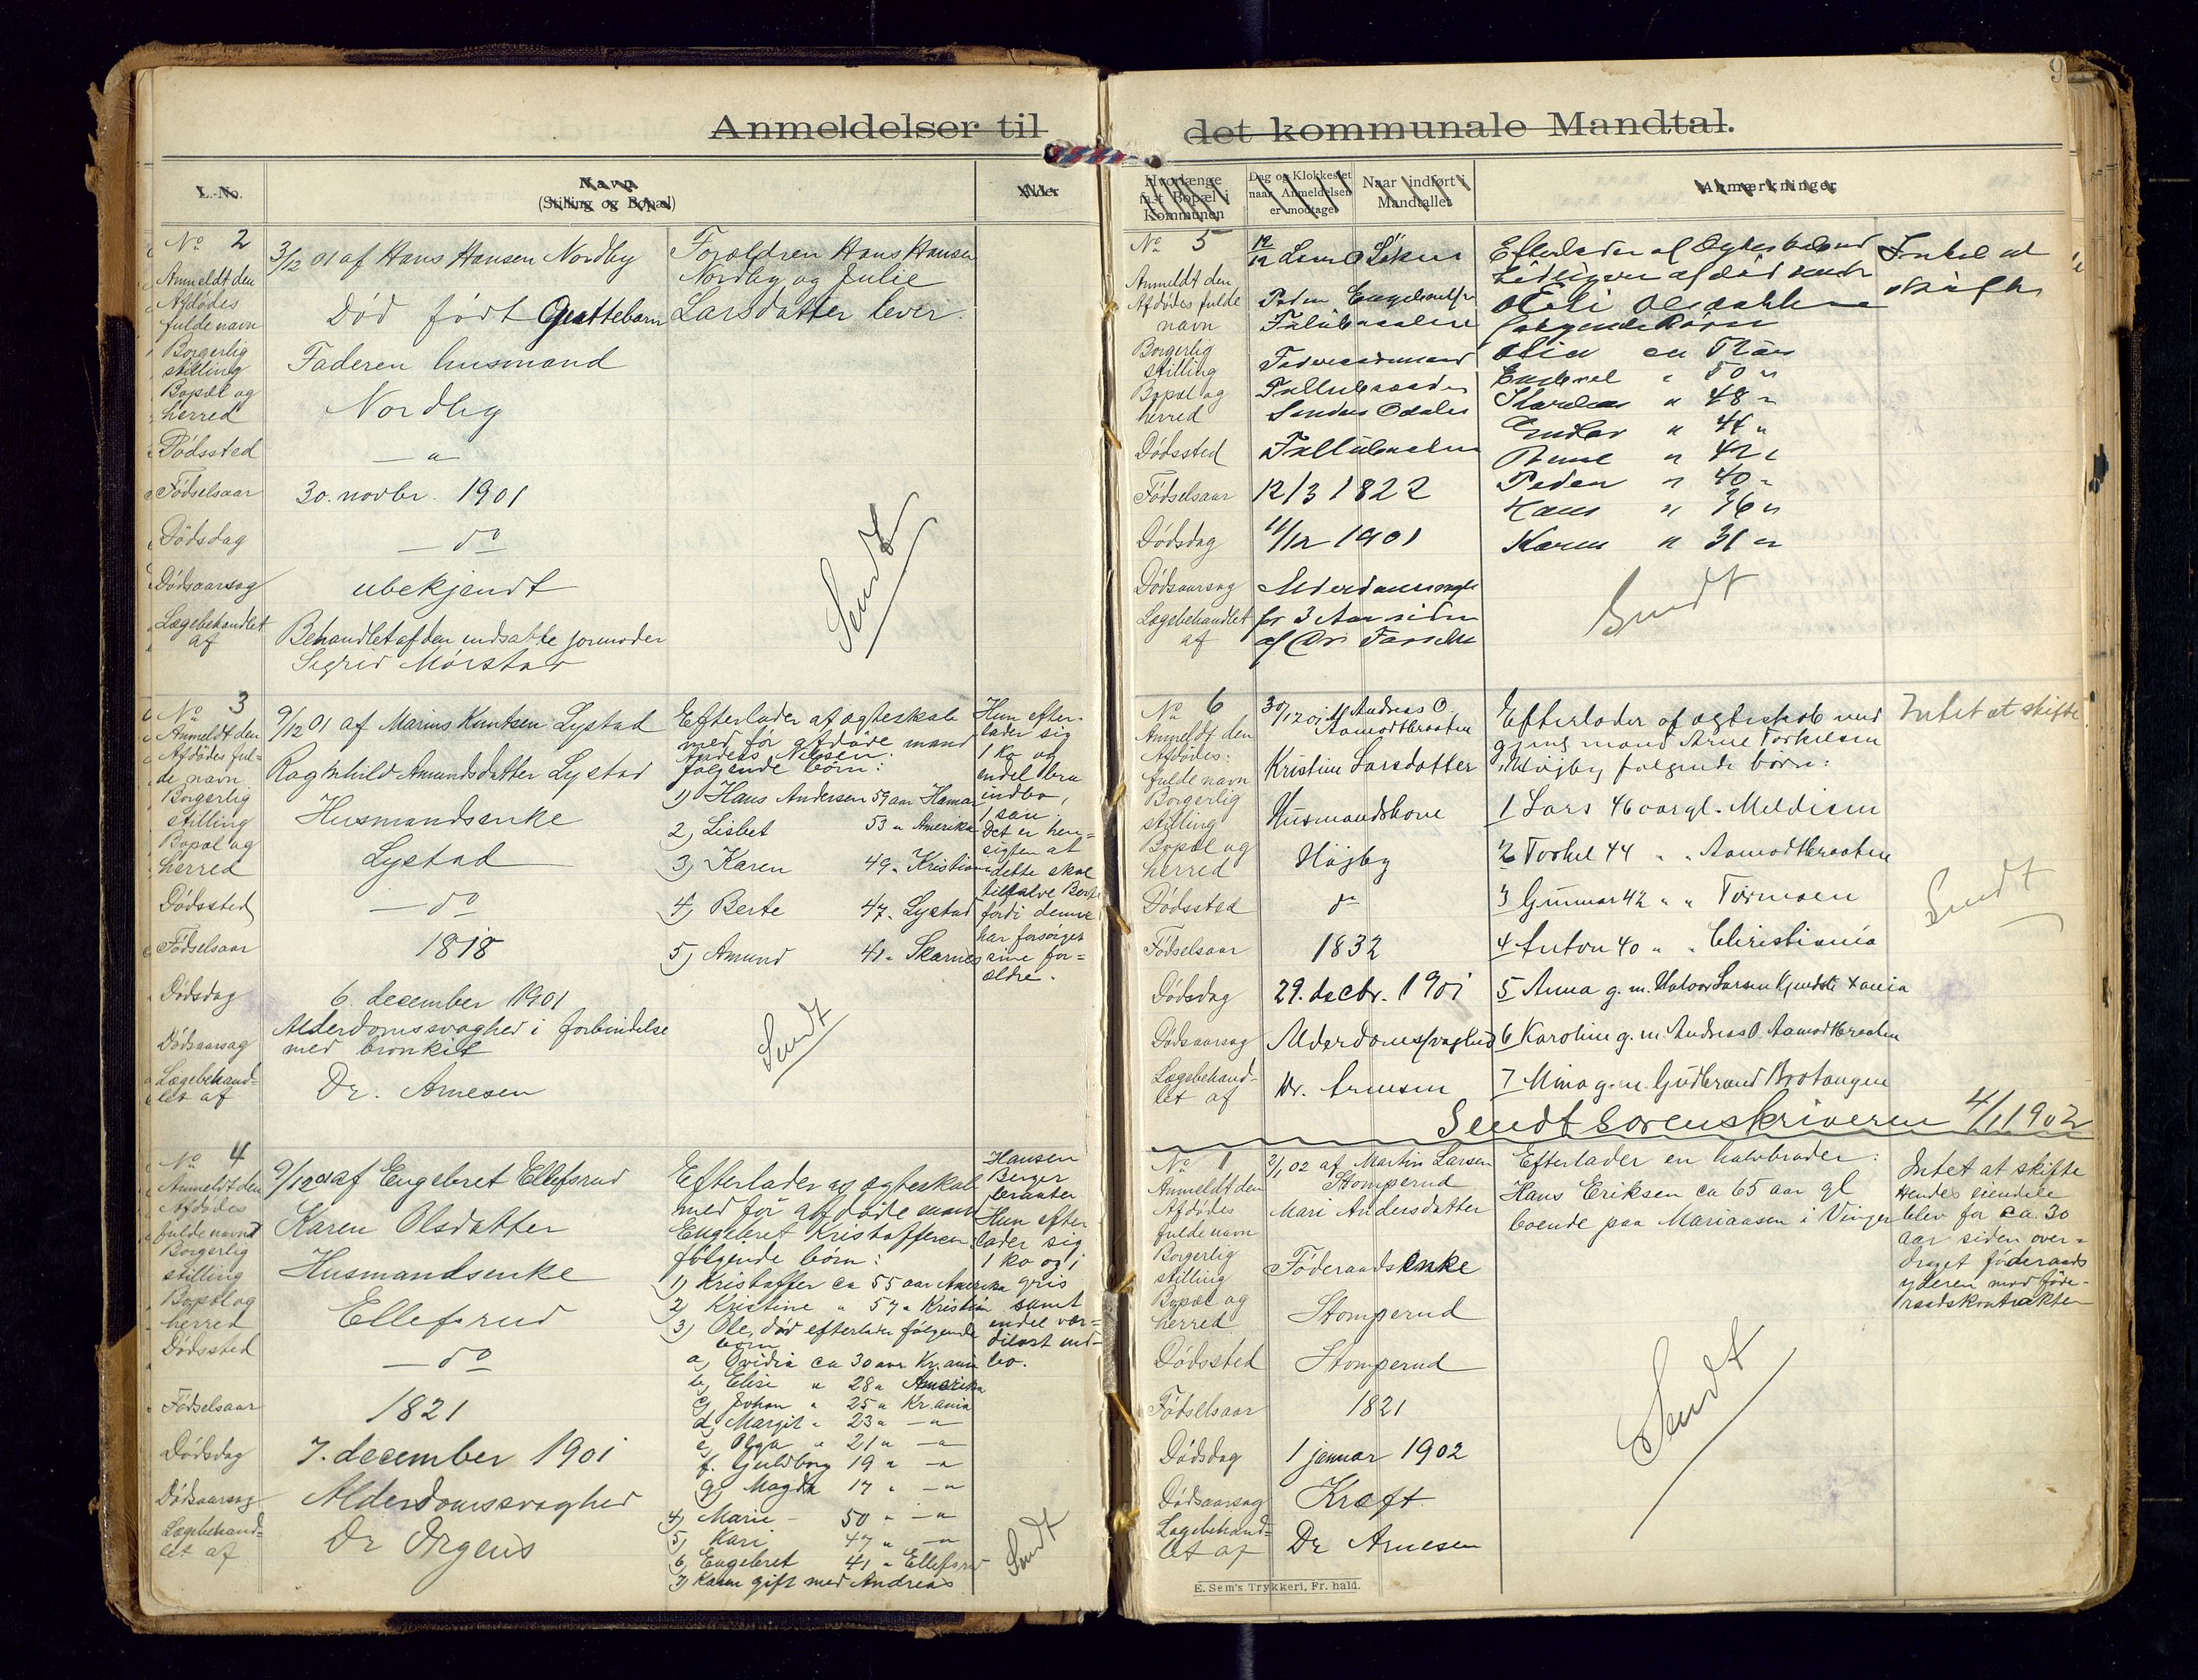 Anmeldelser til
L.-No.
Navn
(Stilling og Bopæl)
Alder
No 2
Anmeldt den
Afdødes
fulde navn
Borgerlig
stilling
Bopæl og
herred
Dødssted
Fødselsaar
Dødsdag
Dødsaarsag
Lægebehandlet
af
3/12 01 af Hans Hansen Nordby
Død født Guttebarn
Faderen husmand
Nordby
— " —
30. novbr. 1901
— do
ubekjendt
Behandlet af den indsatte jormoder
Sigrid Mørstad
Forældren Hans Hansen
Nordby og Julie
Larsdatter lever.
Sendt
No 3
Anmeldt den
Afdødes ful-
de navn
Borgerlig
stilling
Bopæl og
herred
Dødssted
Fødselsaar
Dødsdag
Dødsaarsag
Lægebehand-
let af
9/12 01 af Marius Knutsen Lystad
Ragnhild Amundsdatter Lystad
Husmandsenke
Lystad
— do
1818
6. december 1901
Alderdomssvaghed i forbindelse
med bronkit
Dr. Arnesen
Efterlader af ægteskab
med før afdøde mand
Anders Nilsen
følgende børn:
1) Hans Andersen 59 aar Hamar
2) Lisbet 53 " Amerika
3) Karen 49 " Kristiania
4) Berte 47 " Lystad
5) Amund 41 " Skarnes
Sendt
Hun efter-
lader sig
1 ko og
endel bra
indbo,
1 sau.
Det er hen-
sigten at
dette skal
tilfalde Berte
fordi denne
har forsørget
sine for-
ældre.
No 4
Anmeldt den
Afdødes
fulde navn
Borgerlig
stilling
Bopæl og
herred
Dødssted
Fødselsaar
Dødsdag
Dødsaarsag
Lægebehand-
let af
9/12 01 af Engebret Ellefsrud
Karen Olsdatter
Husmandsenke
Ellefsrud
— do
1821
7. december 1901
Alderdomssvaghed
Dr Ørgens
Efterlader af ægteskab
med før afdøde mand
Engebret Kristoffersen
følgende børn:
1) Kristoffer ca 55 aar Amerika
2) Kristine " 57 " Kristian
3) Ole, død efterlader følgende
børn
a) Ovidia ca 30 aar Kr.ania
b) Elise " 28 " Amerika
c) Johan " 25 " Kr.ania
d) Margit " 23 " — "
e) Olga " 21 " — "
f. Guldborg 19 " — "
g) Magda 17 " — "
4) Marie - 50 " — "
5) Kari 47 " — "
6) Engebret 41 " Ellefsrud
7) Karen gift med Andreas
Hansen
Berger
braaten
Hun efter
lader sig
1 ko og 1
gris
samt
endel vær-
diløst ind-
bo.
Sendt
9
det kommunale Mandtal.
Hvorlænge
fast Bopæl i
Kommunen
Dag og Klokkeslet
naar Anmeldelsen
er modtaget
Naar indført i
Mandtallet
Anmærkninger
No 5
Anmeldt den
Afdødes fulde
navn
Borgerlig
stilling
Bopæl og
herred
Dødssted
Fødselsaar
Dødsdag
Dødsaarsag
Lægebehandlet
af
Søndre Odalen
12/3 1822
11/12 1901
Alderdomssvaghed
for 3 Aar siden
Efterlader af Ægteskab med
følgende Børn
50 "
48 "
" 42 "
Peder " 40 "
Hans " 36 "
Karen " 31 "
Sendt
Intet at
skifte
No 6
Anmeldt den
Afdødes
fulde navn
Borgerlig
stilling
Bopæl og
herred
Dødssted
Fødselsaar
Dødsdag
Dødsaarsag
Lægebehand-
let af
30/12 01 af Andreas O.
Aamodtbraaten
Kristine Larsdatter
Husmandskone
Højby
do
1832
29. decbr. 1901
Alderdomssvaghed
Dr. Arnesen
Efterlader af ægteskab med
gjenl. mand Arne Torkelsen
Højby følgende børn:
1 Lars 46 aar gl. Meldisen
2 Torkel 44 " " Aamodtbraaten
3 Gunnar 42 " " Tormoen
4 Anton 40 " " Christiania
5 Anna g. m. Halvor Larsen Xania
6 Karoline g. m. Andreas O. Aamodtbraaten
7 Mina g. m. Gudbrand Brotangen
Intet at skifte
Sendt
Sendt sorenskriveren 4/1 1902
No 1
Anmeldt den
Afdødes
fulde navn
Borgerlig
stilling
Bopæl og
herred
Dødssted
Fødselsaar
Dødsdag
Dødsaarsag
Lægebehand-
let af
2/1 02 af Martin Larsen
Stomperud
Mari Andersdatter
Føderaadsenke
Stomperud
Stomperud
1821
1 januar 1902
Kræft
Dr Arnesen
Efterlader en halvbroder:
Hans Eriksen ca 65 aar gl
boende paa Mariaasen i Vinger
Intet at skifte
Hendes eiendele
blev for ca. 30
aar siden over-
draget føderaads
yderen mod føde-
raadskontrakten
Sendt
E. Sem's Trykkeri, Fr. hald.